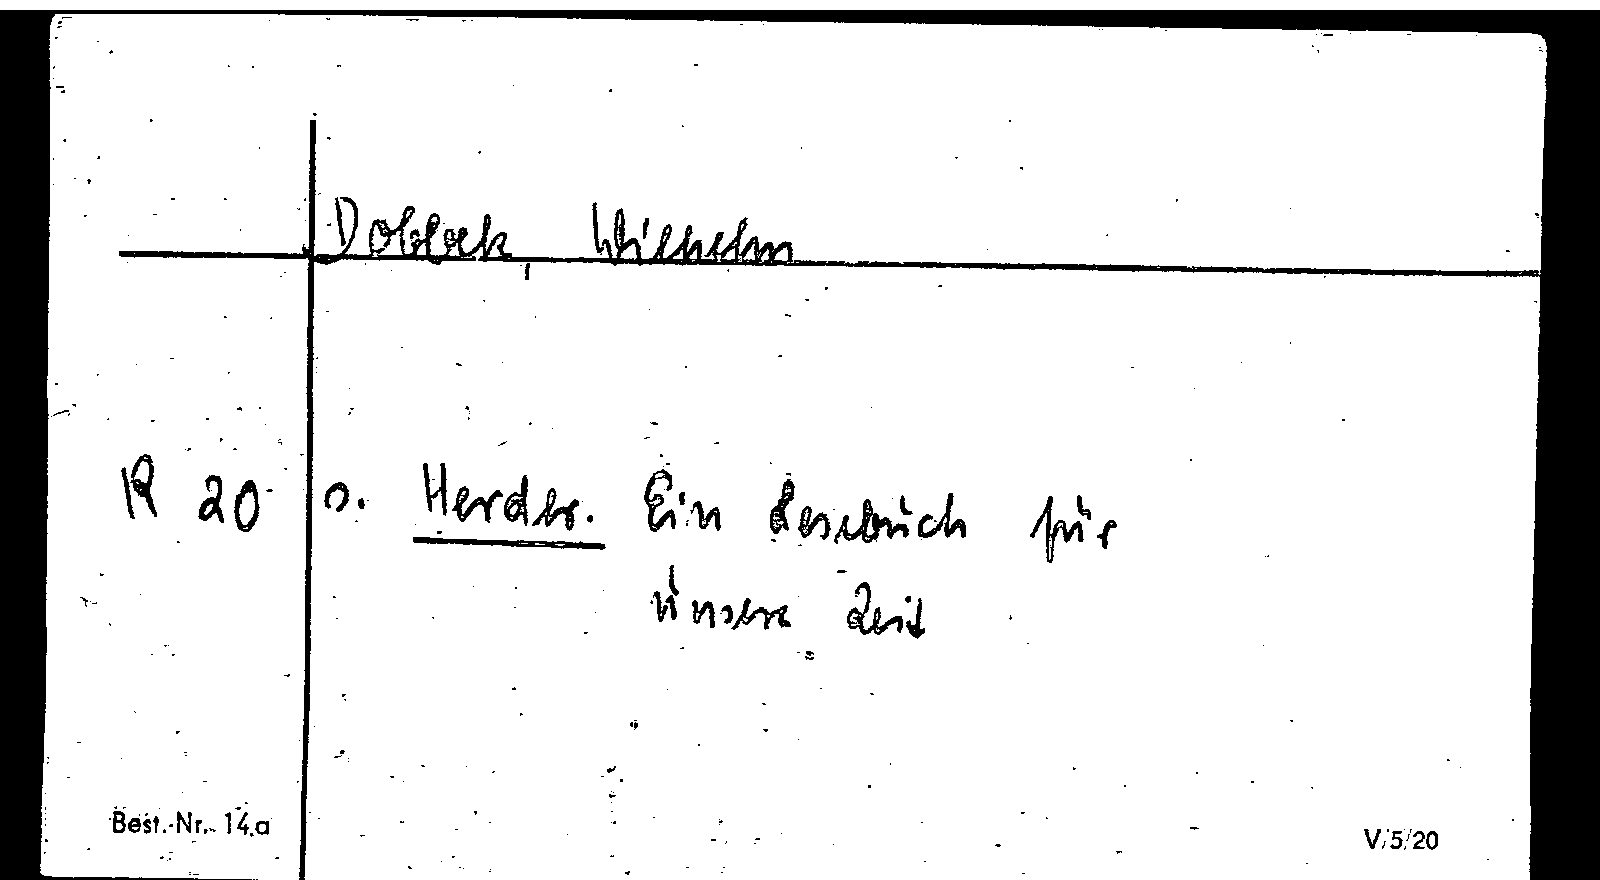 Dobbek, Wilhelm
R 20 s. Herder. Ein Lesebuch für
unsere Zeit
Best.-Nr. 14a V/5/20